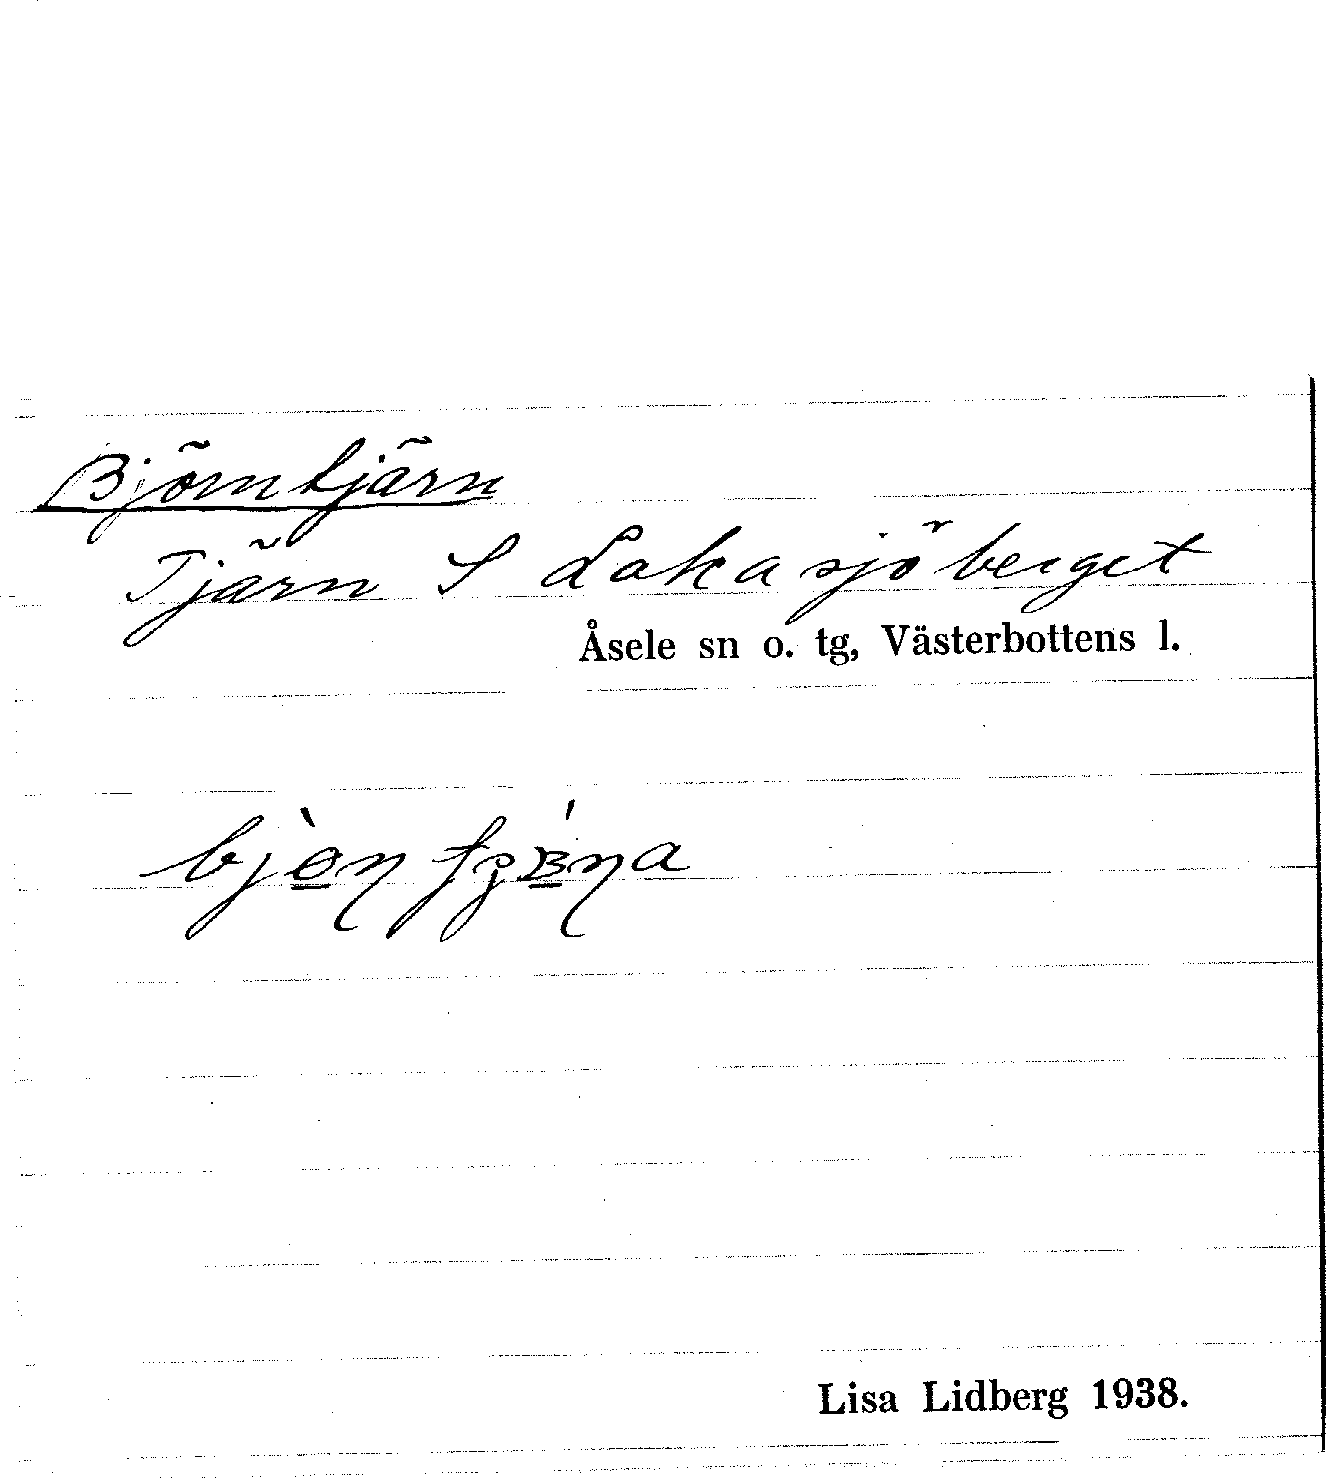 Björntjärn
Tjärn S Lakasjöberget
Åsele sn o. tg, Västerbottens l.
Lisa Lidberg 1938.